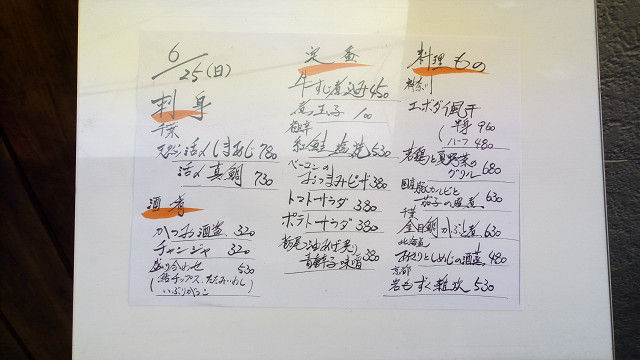 6/25(日)
刺身
千葉
活〆しまあじ 780
活〆真鯛 730
酒肴
かつお酒盗 320
チャンジャ 320
盛り合わせ 530
(鮭チップス、たたみいわし
いぶりがっこ)
定番
牛すじ煮込み 450
煮玉子 100
紅鮭塩焼 530
ベーコンの
おつまみピザ 380
トマトサラダ 380
ポテトサラダ 380
栃尾油あげ炙り
青唐辛子味噌 380
料理もの
神奈川
エボダイ風干
(半身 960
ハーフ 480
若鶏と夏野菜の
グリル 680
国産豚カルビと
茄子の 630
千葉
金目鯛かぶと煮 630
北海道
ホタテとしめじの酒蒸 480
京都
岩もずく雑炊 530